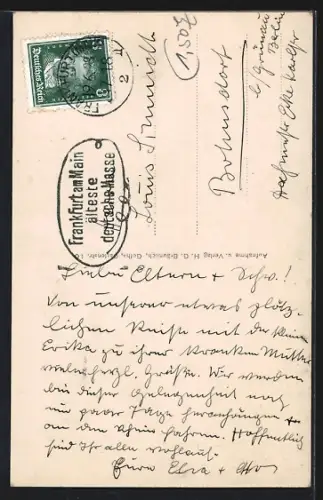 Deutsches Reich
8
Frankfurt am Main
älteste
deutsche Messe
1,50
Louis
Bohnsdorf
b/ Grünau
Berlin
Aufnahme u. Verlag H. G. Gotha
Liebe Eltern + Schw.!
Von unserer etwas plötz-
lichen Reise mit der kleinen
Erika zu ihrer kranken Mutter
viele herzl. Grüße. Wir werden
bei dieser Gelegenheit noch
ein paar Tage +
an den Rhein fahren. Hoffentlich
seid Ihr alle wohlauf.
Eure + Otto